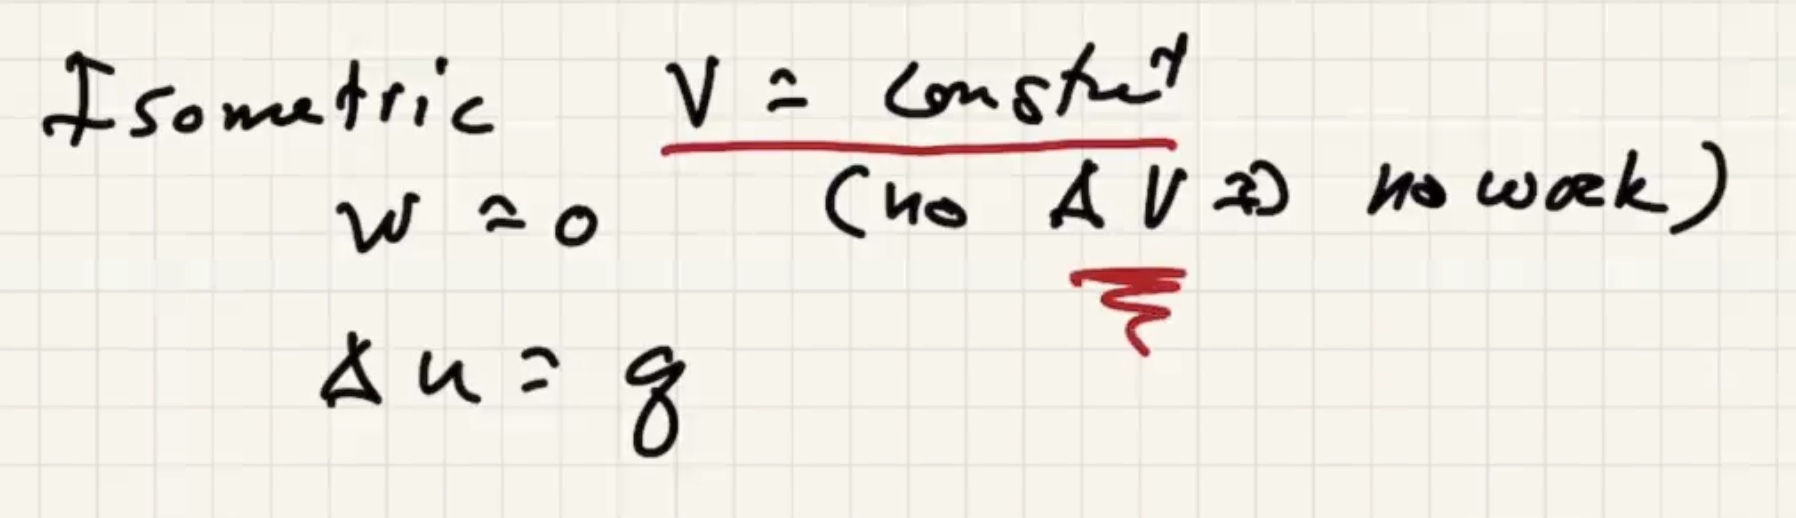 Isometric V = constant
w = 0 (no ΔV => no work)
Δu = q